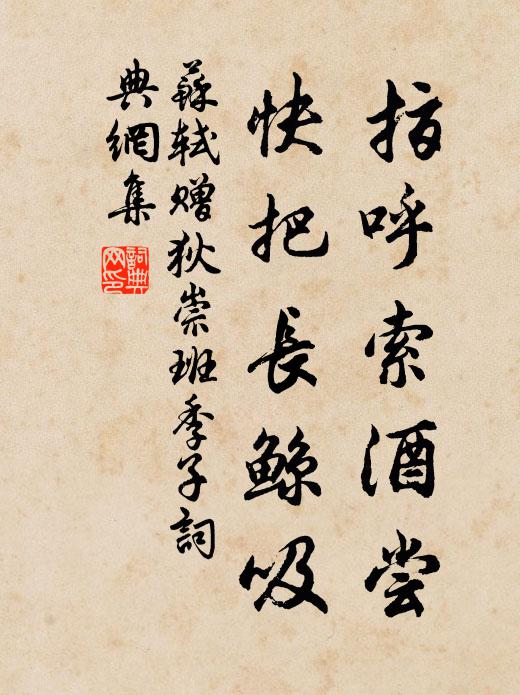 指呼索酒尝
快把長鲸吸
蘇軾贈狄崇班季子詞
典網集
詞典
网印